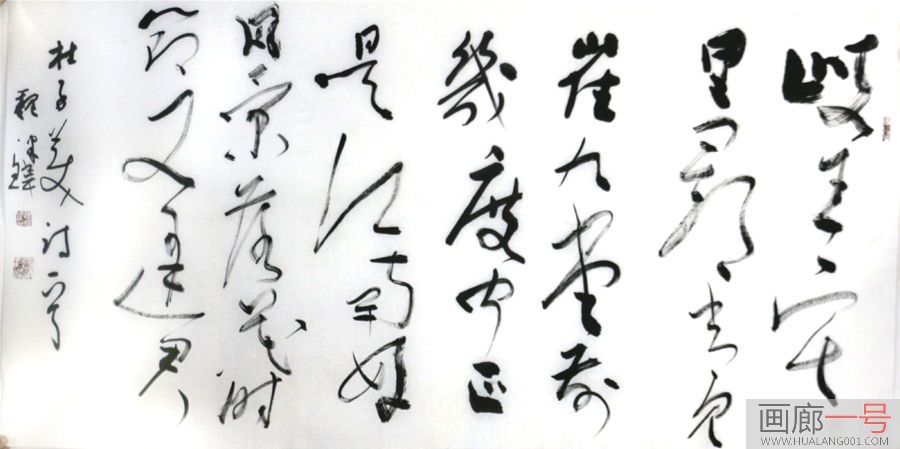 岐王宅
里尋常見
崔九堂前
幾度聞正
是江南好
風景落花时
節又逢君
杜子美诗一首
画廊一号
WWW.HUALANG001.COM